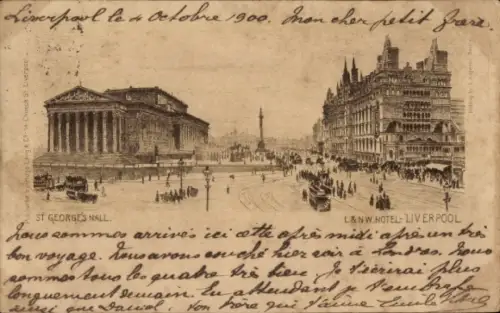 Liverpool le 4 Octobre 1900. Mon cher petit
ST GEORGE'S HALL.
L & N.W. HOTEL - LIVERPOOL
Nous sommes arrivés ici cette après midi après un très
bon voyage. Nous avons couché hier soir à Londres. Nous
sommes tous les quatre très bien. Je t'écrirai plus
longuement demain. En attendant je t'embrasse
ainsi que David. Ton frère qui t'aime Emile